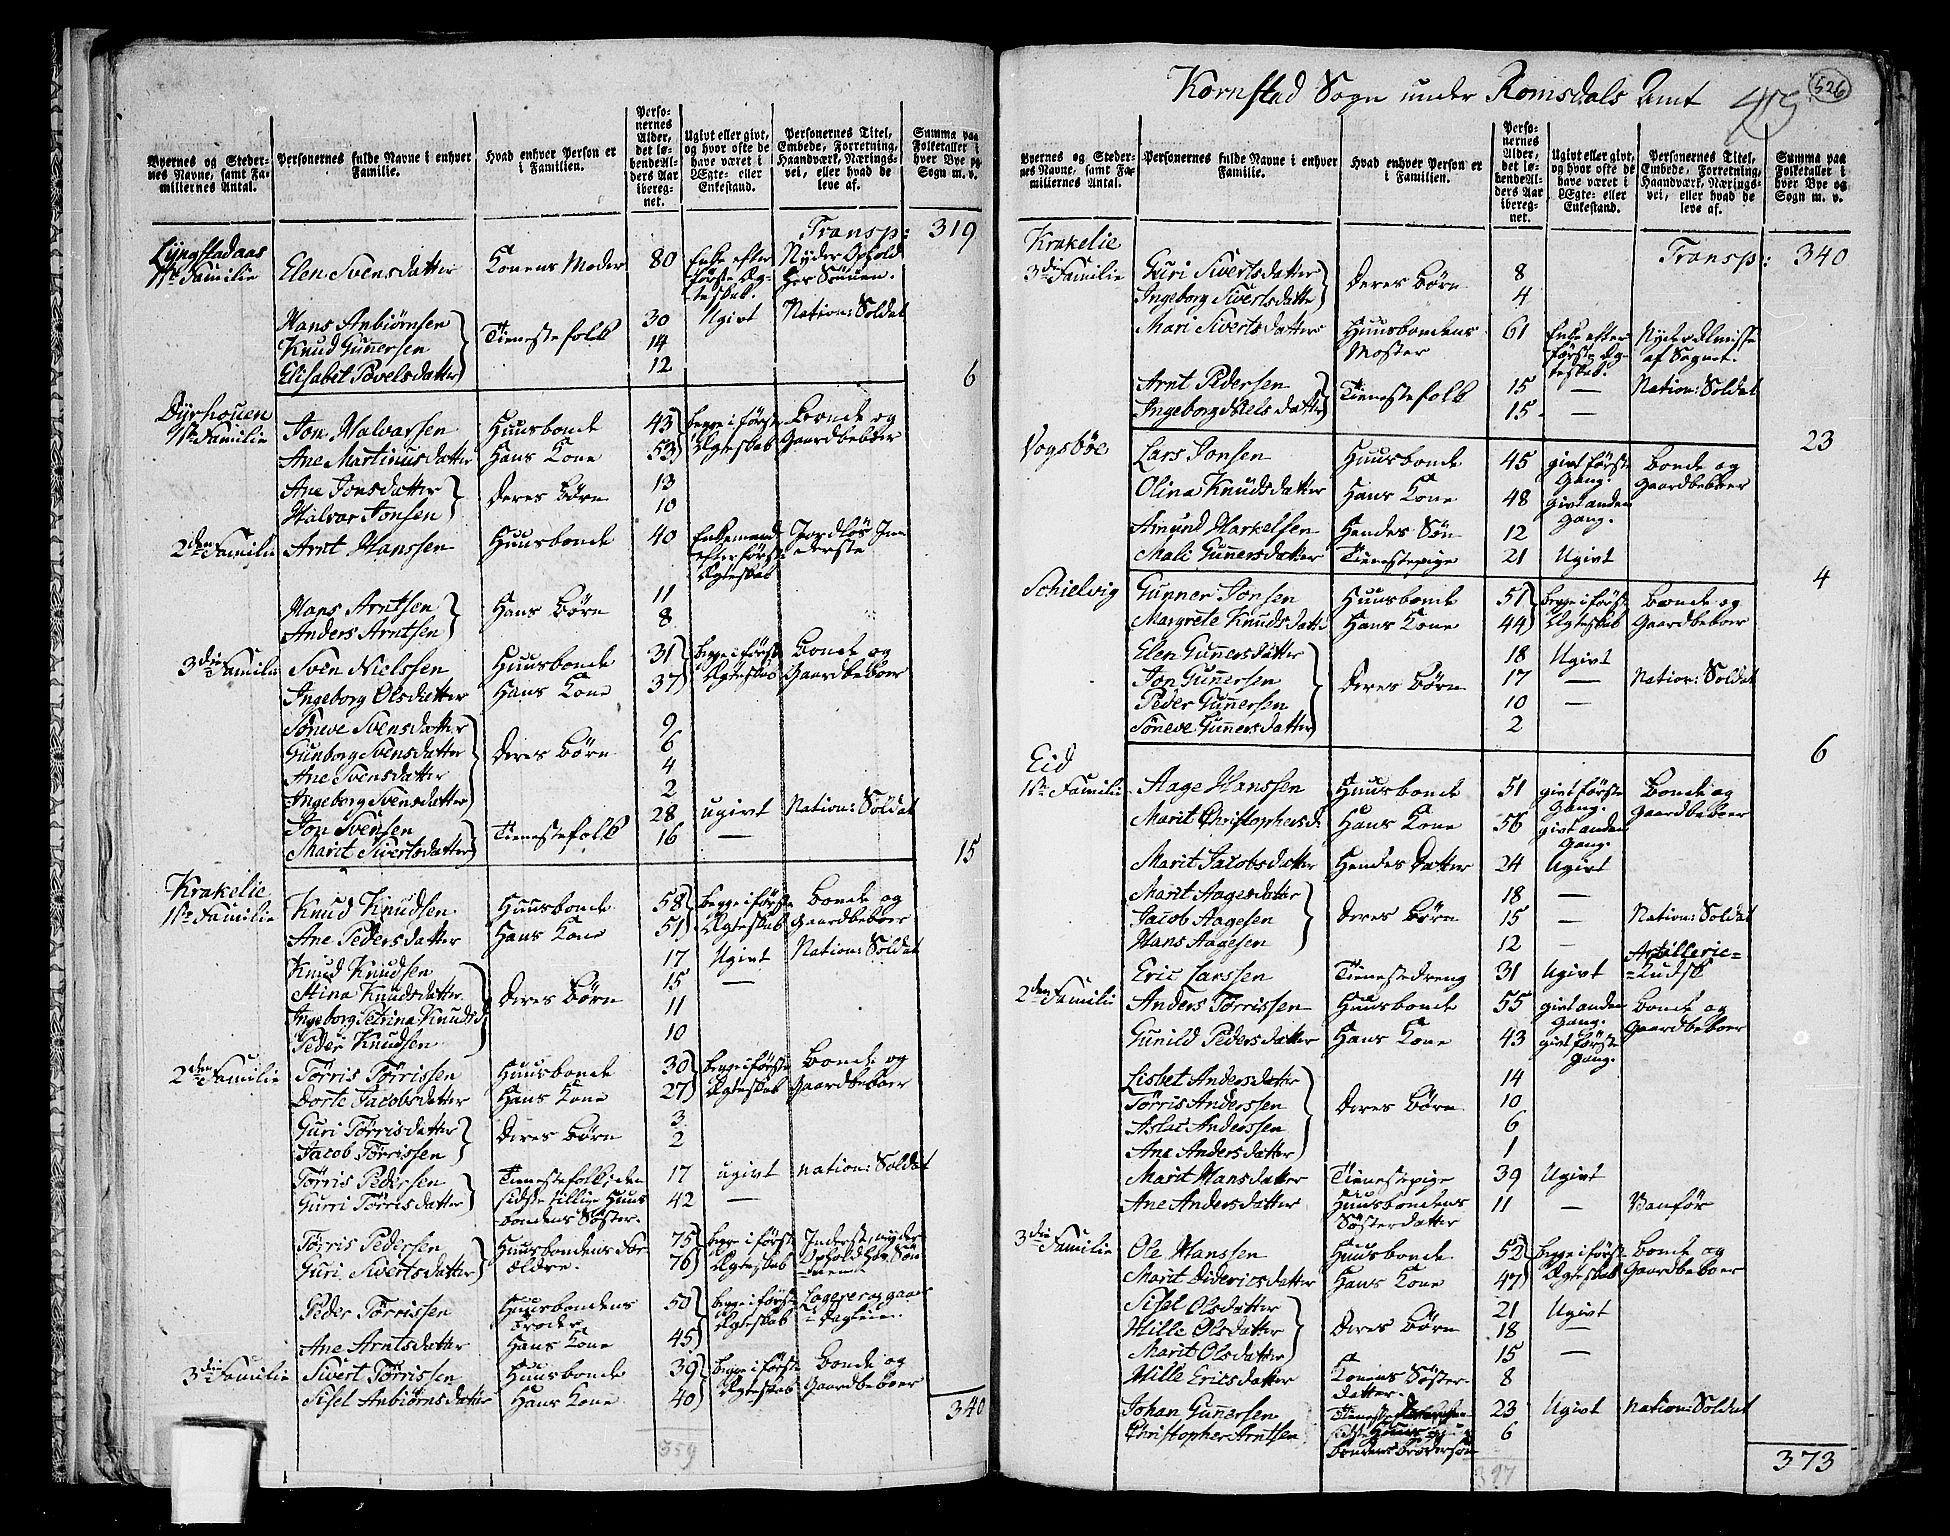 Byernes og Stedernes Navne, samt Familiernes Antal.
Personernes fulde Navne i enhver Familie.
Hvad enhver Person er i Familien.
Personernes Alder, det løbende Alders Aar iberegnet.
Ugivt eller givt, og hvor ofte de have været i Ægte- eller Enkestand.
Personernes Titel, Embede, Forretning, Haandværk, Næringsvei, eller hvad de leve af.
Summa paa Folketallet i hver Bye og Sogn m. v.
Transp: 319
Lyngstadaas
1ste Familie Elen Svensdatter Konens Moder 80 Enke efter første Ægteskab. Nyder Ophold hos Sönnen.
Hans Anbiörnsen Tienestefolk 30 Ugivt Nation: Soldat
Knud Gunersen 14
Elisabet Povelsdatter 12
6
Dyrhouen
1ste Familie Jon Halvarssen Huusbonde 43 begge i første Ægteskab Bonde og Gaardbeboer
Ane Martinusdatter Hans Kone 53
Ane Jonsdatter Deres Börn 13
Halvor Jonsen 10
2den Familie Arnt Hanssen Huusbonde 40 Enkemand efter første Ægteskab Jordløs Inderste
Hans Arntsen Hans Börn 11
Anders Arntsen 8
3die Familie Sven Nielssen Huusbonde 31 begge i første Ægteskab Bonde og Gaardbeboer
Ingeborg Olsdatter Hans Kone 37
Söneve Svensdatter Deres Börn 9
Gunborg Svensdatter 6
Ane Svensdatter 4
Ingeborg Svensdatter 2
Jon Svensen Tienestefolk 28 ugivt Nation: Soldat
Marit Sivertsdatter 16 —
15
Krakelie
1ste Familie Knud Knudsen Huusbonde 58 begge i første Ægteskab Bonde og Gaardbeboer
Ane Pedersdatter Hans Kone 51
Knud Knudsen Deres Börn 17 Ugivt Nation: Soldat
Stina Knudsdatter 15 —
Ingeborg Petrina Knudsd 11
Peder Knudsen 10
2den Familie Törris Törrissen Huusbonde 30 begge i første Ægteskab Bonde og Gaardbeboer
Dorte Jacobsdatter Hans Kone 27
Guri Törrisdatter Deres Börn 3
Jacob Törrissen 2
Törris Pedersen Tienestefolk, den 17 ugivt nation: Soldat
Gurri Törrisdatter sidste tillige Huusbondens Söster. 42 —
Törris Pedersen Huusbondens Forældre. 75 begge i første Ægteskab Inderste, nyder Ophold hos Sönnen
Guri Sivertsdatter 76
Peder Törrissen Huusbondens Broder 50 begge i første Ægteskab
Ane Arntsdatter Hans Kone 45
3die Familie Sivert Törrissen Huusbonde 39 begge i første Ægteskab Bonde og Gaardbeboer
Sisel Anbiörnsdatter Hans Kone 40
340
359
Kornstad Sogn under Romsdals Amt
526
Byernes og Stedernes Navne, samt Familiernes Antal.
Personernes fulde Navne i enhver Familie.
Hvad enhver Person er i Familien.
Personernes Alder, det løbende Alders Aar iberegnet.
Ugivt eller givt, og hvor ofte de have været i Ægte- eller Enkestand.
Personernes Titel, Embede, Forretning, Haandværk, Næringsvei, eller hvad de leve af.
Summa paa Folketallet i hver Bye og Sogn m. v.
Transp: 340
Krakelie
3die Familie Guri Sivertsdatter Deres Börn 8
Ingeborg Sivertsdatte 4
Mari Sivertsdatter Huusbondens Moster 61 Enke efter første Ægteskab. Nyder Almisse af Sognet.
Arnt Pedersen Tienestefolk 15 — Nation: Soldat
Ingeborg Nielsdatter 15 —
23
Vogsböe Lars Jonsen Huusbonde 45 givt første Gang. Bonde og Gaardbeboer
Olina Knudsdatter Hans Kone 48 givt anden Gang.
Amund Harkelsen Hendes Sön 12
Mali Gunersdatter Tienestepige 21 Ugivt
4
Schielvig Gunner Jonsen Huusbonde 51 begge i første Ægteskab Bonde og Gaardbeboer
Margrete Knudsdatte Hans Kone 44
Elen Gunersdatter Deres Börn 18 Ugivt
Jon Gunersen 17 — Nation: Soldat
Peder Gunersen 10 —
Söneve Gunersdatter 2
6
Eid
1ste Familie Aage Hanssen Huusbonde 51 givt første Gang. Bonde og Gaardbeboer
Marit Christophersd. Hans Kone 56 givt anden Gang.
Marit Jacobsdatter Hendes Datter 24 Ugivt
Marit Aagesdatter Deres Börn 18 —
Jacob Aagesen 15 — Nation: Soldat
Hans Aagesen 12 —
Eric Larssen Tienestedreng 31 Ugivt Artillerie-Kudsk
2den Familie Anders Törrissen Huusbonde 55 givt anden Gang. Bonde og Gaardbeboer
Gunild Pedersdatter Hans Kone 43 givt første Gang.
Lisbet Andersdatter Deres Börn 14
Törris Anderssen 10
Aslac Anderssen 6
Ane Andersdatter 1
Marit Hansdatter Tienestepige 39 Ugivt
Ane Andersdatter Huusbondens Søsterdatter 11 — Vanför
3die Familie Ole Hanssen Huusbonde 52 begge i første Ægteskab Bonde og Gaardbeboer
Marit Didericsdatter Hans Kone 47
Sisel Olsdatter Deres Börn 21 Ugivt
Mille Olsdatter 18 —
Marit Olsdatter 15 —
Mille Ericsdatter Konens Söster-datter. 8
Johan Gunersen 23 Ugivt Nation: Soldat
Christopher Arntsen 6
373
397